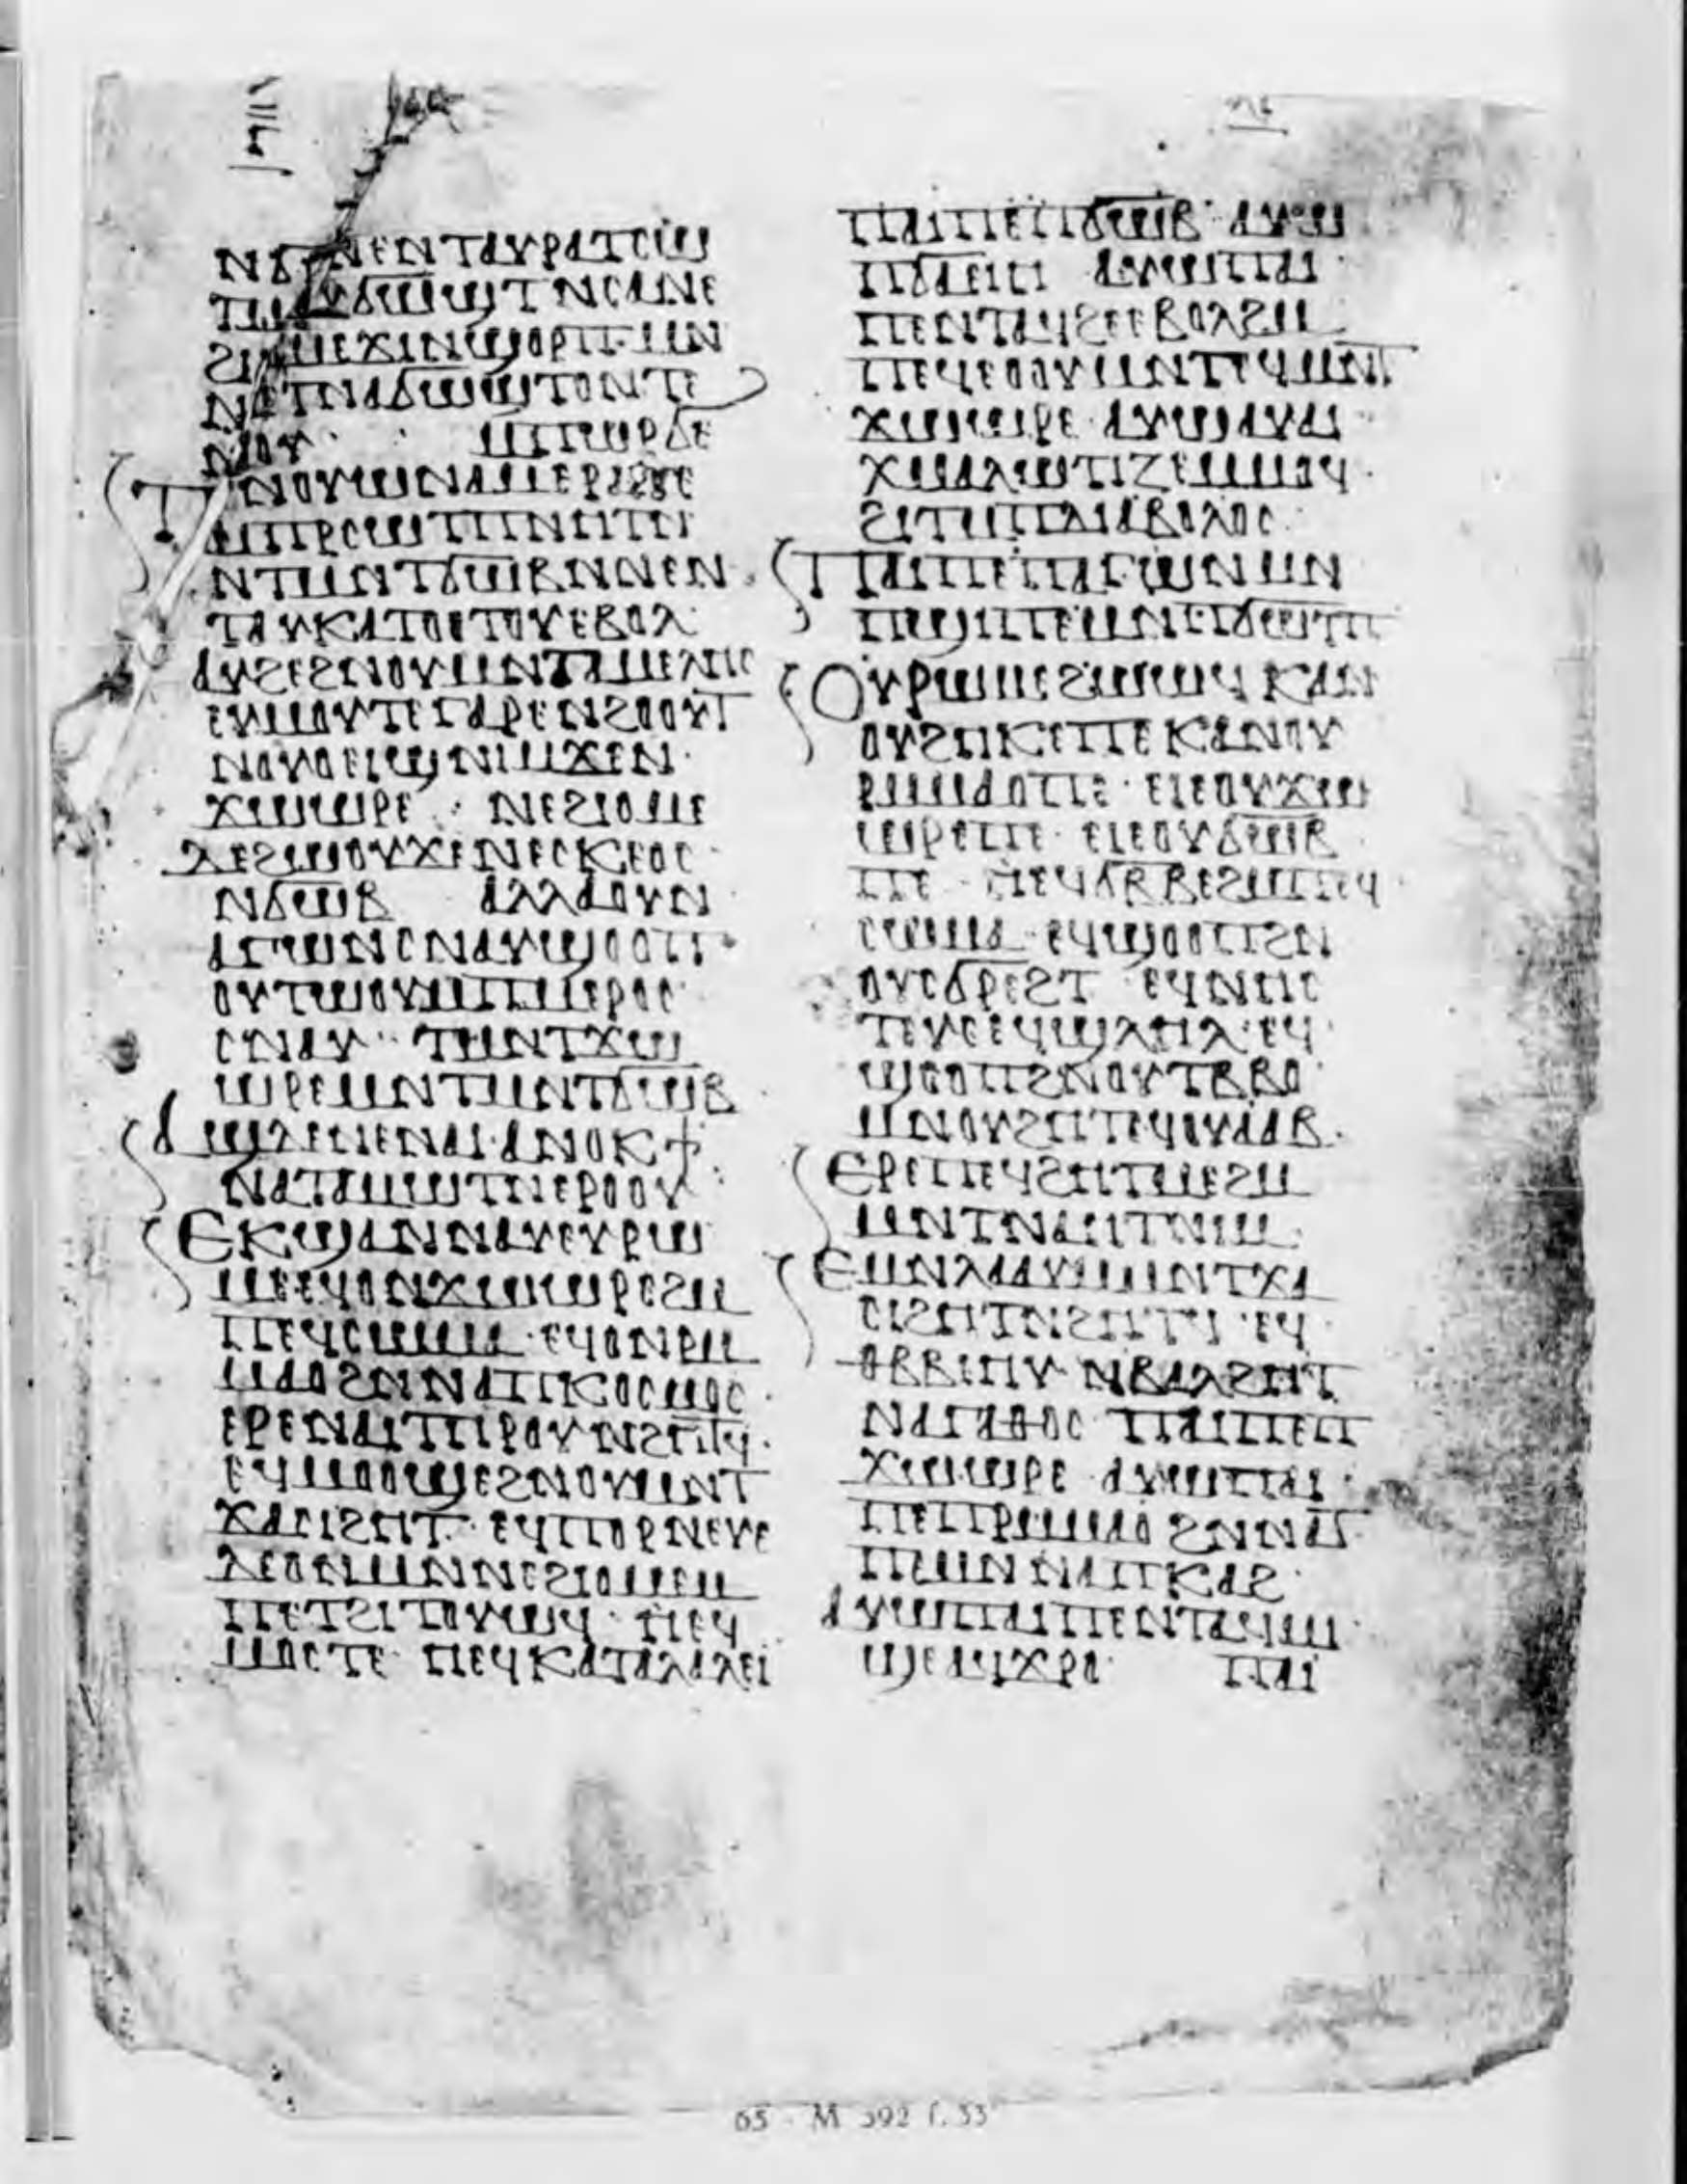 ⲛϭⲓⲛⲉⲛⲧⲁⲩⲣⲁⲧⲥⲱ
ⲧⲙⲁⲩϭⲱϣⲧⲛⲥⲁⲛⲉ
ϩⲙⲡⲉϫⲓⲛϣⲟⲣⲡ·ⲙⲛ
ⲛⲉⲧⲛⲁϭⲱϣⲧⲟⲛⲧⲉ
ⲛⲟⲩ· ⲙⲡⲱⲣϭⲉ
ⲡⲛⲟⲩⲱⲛⲁⲙⲉⲣⲓⲧⲉ
ⲙⲡⲣⲥⲱⲧⲡⲛⲏⲧⲛ
ⲛⲧⲙⲛⲧϭⲱⲃⲛⲛⲉⲛ
ⲧⲁⲩⲕⲁⲧⲟⲟⲧⲟⲩⲉⲃⲟⲗ·
ⲁⲩϩⲉϩⲛⲟⲩⲙⲛⲧⲁⲙⲉⲗⲏⲥ
ⲉⲩⲙⲟⲩⲧⲉⲅⲁⲣⲉⲛϩⲟⲟⲩⲧ
ⲛⲟⲩⲟⲉⲓϣⲛⲓⲙϫⲉⲛ·
ϫⲱⲱⲣⲉ· ⲛⲉϩⲓⲟⲙⲉ
ⲗⲉϩⲱⲟⲩϫⲉⲛⲉⲥⲕⲉⲟⲥ·
ⲛϭⲱⲃ ⲁⲗⲗⲁⲟⲩⲛ
ⲁⲅⲱⲛⲟⲛⲁⲩϣⲟⲟⲡ·
ⲟⲩⲧⲱⲟⲩⲙⲡⲙⲉⲣⲟⲥ·
ⲥⲛⲁⲩ· ⲧⲙⲛⲧϫⲱ
ⲱⲣⲉⲙⲛⲧⲙⲛⲧϭⲱⲃ
ⲁϣⲗⲉⲛⲉⲛⲁⲓ·ⲁⲛⲟⲕϯ
ⲛⲁⲧⲁⲙⲱⲧⲛⲉⲣⲟⲟⲩ·
ⲉⲕϣⲁⲛⲛⲁⲩⲉⲩⲣⲱ
ⲙⲉⲉϥⲟⲛϫⲱⲱⲣⲉϩⲙ
ⲡⲉϥⲥⲱⲙⲁ·ⲉϥⲟⲛⲣⲙ
ⲙⲁⲟϩⲛⲛⲁⲡⲕⲟⲥⲙⲟⲥ·
ⲉⲣⲉⲛⲁⲓⲧⲏⲣⲟⲩⲛϩⲏⲧϥ·
ⲉϥⲙⲟⲟϣⲉϩⲛⲟⲩⲙⲛⲧ
ϫⲁⲥⲓϩⲏⲧ·ⲉϥⲡⲟⲣⲛⲉⲩⲉ
ⲗⲉⲟⲛⲙⲛⲛⲉϩⲓⲟⲙⲉⲙ
ⲡⲉⲧϩⲓⲧⲟⲩⲱϥ·ⲡⲉϥ
ⲙⲟⲥⲧⲉ·ⲡⲉϥⲕⲁⲧⲁⲗⲁⲗⲉⲓ
ⲡⲁⲓⲡⲉⲡϭⲱⲃ·ⲁⲩⲱ
ⲡϭⲁⲉⲓⲏ ⲁⲩⲱⲡⲁⲓ·
ⲡⲉⲛⲧⲁϥϩⲉⲉⲃⲟⲗϩⲙ
ⲡⲉϥⲉⲟⲟⲩⲙⲛⲧⲉϥⲙⲛⲧ
ϫⲱⲱⲣⲉ·ⲁⲩⲱⲁⲩⲁⲓ
ⲭⲙⲁⲗⲱⲧⲓⲍⲉⲙⲙⲟϥ·
ϩⲓⲧⲙⲡⲇⲓⲁⲃⲟⲗⲟⲥ·
ⲡⲁⲓⲡⲉⲡⲁⲅⲱⲛⲙⲛ
ⲡϣⲓⲡⲉⲙⲛⲡϭⲱⲧⲡ
ⲟⲩⲣⲱⲙⲉϩⲱⲱϥⲕⲁⲛ
ⲟⲩϩⲏⲕⲉⲡⲉⲕⲁⲛⲟⲩ
ⲣⲙⲙⲁⲟⲡⲉ·ⲉⲓⲉⲟⲩϫⲱ
ⲱⲣⲉⲡⲉ·ⲉⲓⲉⲟⲩϭⲱⲃ
ⲡⲉ·ⲡⲉϥϭⲃⲃⲉϩⲙⲡⲉϥ
ⲥⲱⲙⲁ·ⲉϥϣⲟⲟⲡϩⲛ
ⲟⲩⲥϭⲣⲉϩⲧ ⲉϥⲛⲏⲥ
ⲧⲉⲩⲉⲉϥϣⲗⲏⲗ·ⲉϥ
ϣⲟⲟⲡϩⲛⲟⲩⲧⲃⲃⲟ·
ⲙⲛⲟⲩϩⲏⲧⲉϥⲟⲩⲁⲁⲃ·
ⲉⲣⲉⲡⲉϥϩⲏⲧⲙⲉϩⲙ
ⲙⲛⲧⲛⲁⲏⲧⲛⲓⲙ·
ⲉⲙⲛⲗⲁⲁⲩⲙⲙⲛⲧϫⲁ
ⲥⲓϩⲏⲧⲛϩⲏⲧϥ·ⲉϥ
ⲑⲃⲃⲓⲏⲩ·ⲛⲃⲁⲗϩⲏⲧ
ⲛⲁⲅⲁⲑⲟⲥ·ⲡⲁⲓⲡⲉⲡ
ϫⲱⲱⲣⲉ·ⲁⲩⲱⲡⲁⲓ·
ⲡⲉⲡⲣⲙⲙⲁⲟϩⲛⲛⲁⲧ
ⲡⲉⲙⲛⲛⲁⲡⲕⲁϩ·
ⲁⲩⲱⲡⲁⲓⲡⲉⲛⲧⲁϥⲙⲓ
ϣⲉⲁϥϫⲣⲟ· ⲡⲁⲓ
65 - M 592 f. 33